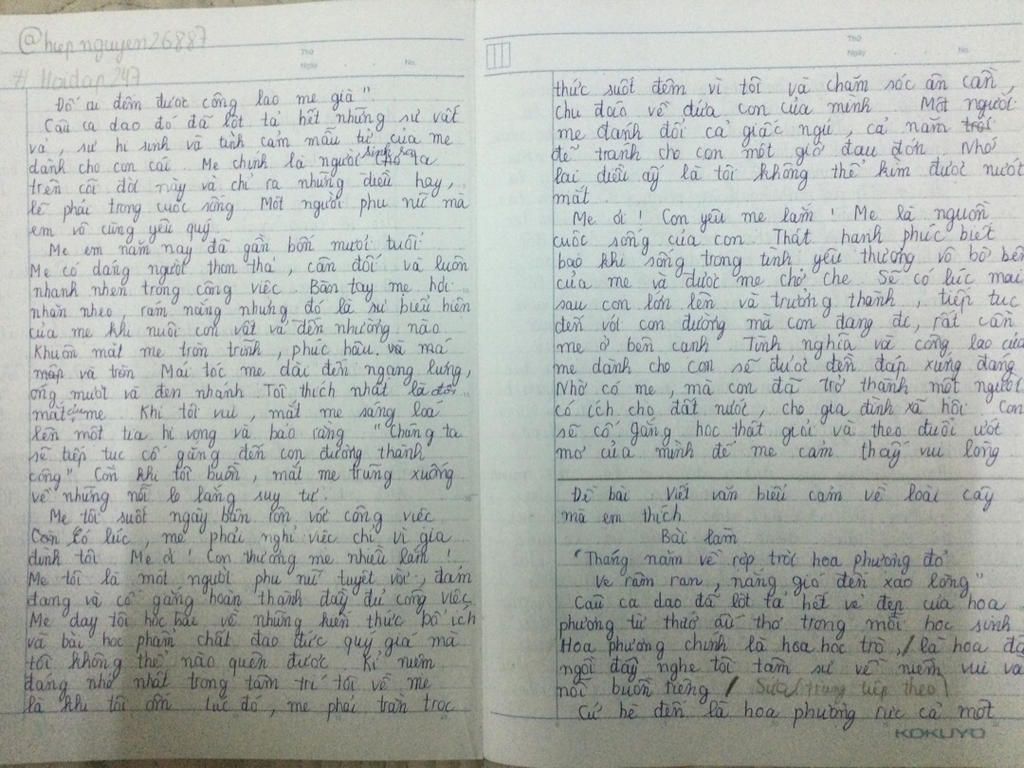 @hiepnguyen26887
# Hoidap247
Thứ
Ngày
No.
Đố ai đếm được công lao mẹ già"
Câu ca dao đó đã lột tả hết những sự vất
vả, sự hi sinh và tình cảm mẫu tử của mẹ
dành cho con cái. Mẹ chính là người sinh ra ta
trên cõi đời này và chỉ ra những điều hay,
lẽ phải trong cuộc sống. Một người phụ nữ mà
em vô cùng yêu quý.
Mẹ em năm nay đã gần bốn mươi tuổi.
Mẹ có dáng người thon thả, cân đối và luôn
nhanh nhẹn trong công việc. Bàn tay mẹ hơi
nhăn nheo, rám nắng nhưng đó là sự biểu hiện
của mẹ khi nuôi con vất vả đến nhường nào
Khuôn mặt mẹ tròn trĩnh, phúc hậu và má
mập và tròn. Mái tóc mẹ dài đến ngang lưng,
óng mượt và đen nhánh. Tôi thích nhất là đôi
mắt của mẹ. Khi tôi vui, mắt mẹ sáng loá
lên một tia hi vọng và bảo rằng "Chúng ta
sẽ tiếp tục cố gắng đến con đường thành
công". Còn khi tôi buồn, mắt mẹ trũng xuống
về những nỗi lo lắng suy tư.
Mẹ tôi suốt ngày bận rộn với công việc
Còn có lúc, mẹ phải nghỉ việc chỉ vì gia
đình tôi. Mẹ ơi! Con thương mẹ nhiều lắm!
Mẹ tôi là một người phụ nữ tuyệt vời, đảm
đang và cố gắng hoàn thành đầy đủ công việc.
Mẹ dạy tôi học bài về những kiến thức bổ ích
và bài học phẩm chất đạo đức quý giá mà
tôi không thể nào quên được. Kỉ niệm
đáng nhớ nhất trong tâm trí tôi về mẹ
là khi tôi ốm. Lúc đó, mẹ phải trằn trọc
Thứ
Ngày
No.
thức suốt đêm vì tôi và chăm sóc ân cần,
chu đáo về đứa con của mình. Một người
mẹ đánh đổi cả giấc ngủ, cả năm trời
để tránh cho con một giờ đau đớn. Nhớ
lại điều ấy là tôi không thể kìm được nước
mắt.
Mẹ ơi! Con yêu mẹ lắm! Mẹ là nguồn
cuộc sống của con. Thật hạnh phúc biết
bao khi sống trong tình yêu thương vô bờ bến
của mẹ và được mẹ chở che. Sẽ có lúc mai
sau con lớn lên và trưởng thành, tiếp tục
đến với con đường mà con đang đi, rất cần
mẹ ở bên cạnh. Tình nghĩa và công lao của
mẹ dành cho con sẽ được đền đáp xứng đáng
Nhờ có mẹ, mà con đã trở thành một người
có ích cho đất nước, cho gia đình xã hội. Con
sẽ cố gắng học thật giỏi và theo đuổi ước
mơ của mình để mẹ cảm thấy vui lòng
Đề bài Viết văn biểu cảm về loài cây
mà em thích
Bài làm
"Tháng năm về rợp trời hoa phượng đỏ
Ve râm ran, nắng gió đến xao lòng"
Câu ca dao đã lột tả hết vẻ đẹp của hoa
phượng từ thuở ấu thơ trong mỗi học sinh.
Hoa phượng chính là hoa học trò, / là hoa đã
ngồi đấy nghe tôi tâm sự về niềm vui và
nỗi buồn riêng / Sửa (trang tiếp theo)
Cứ hè đến là hoa phượng rực cả một
KOKUYO